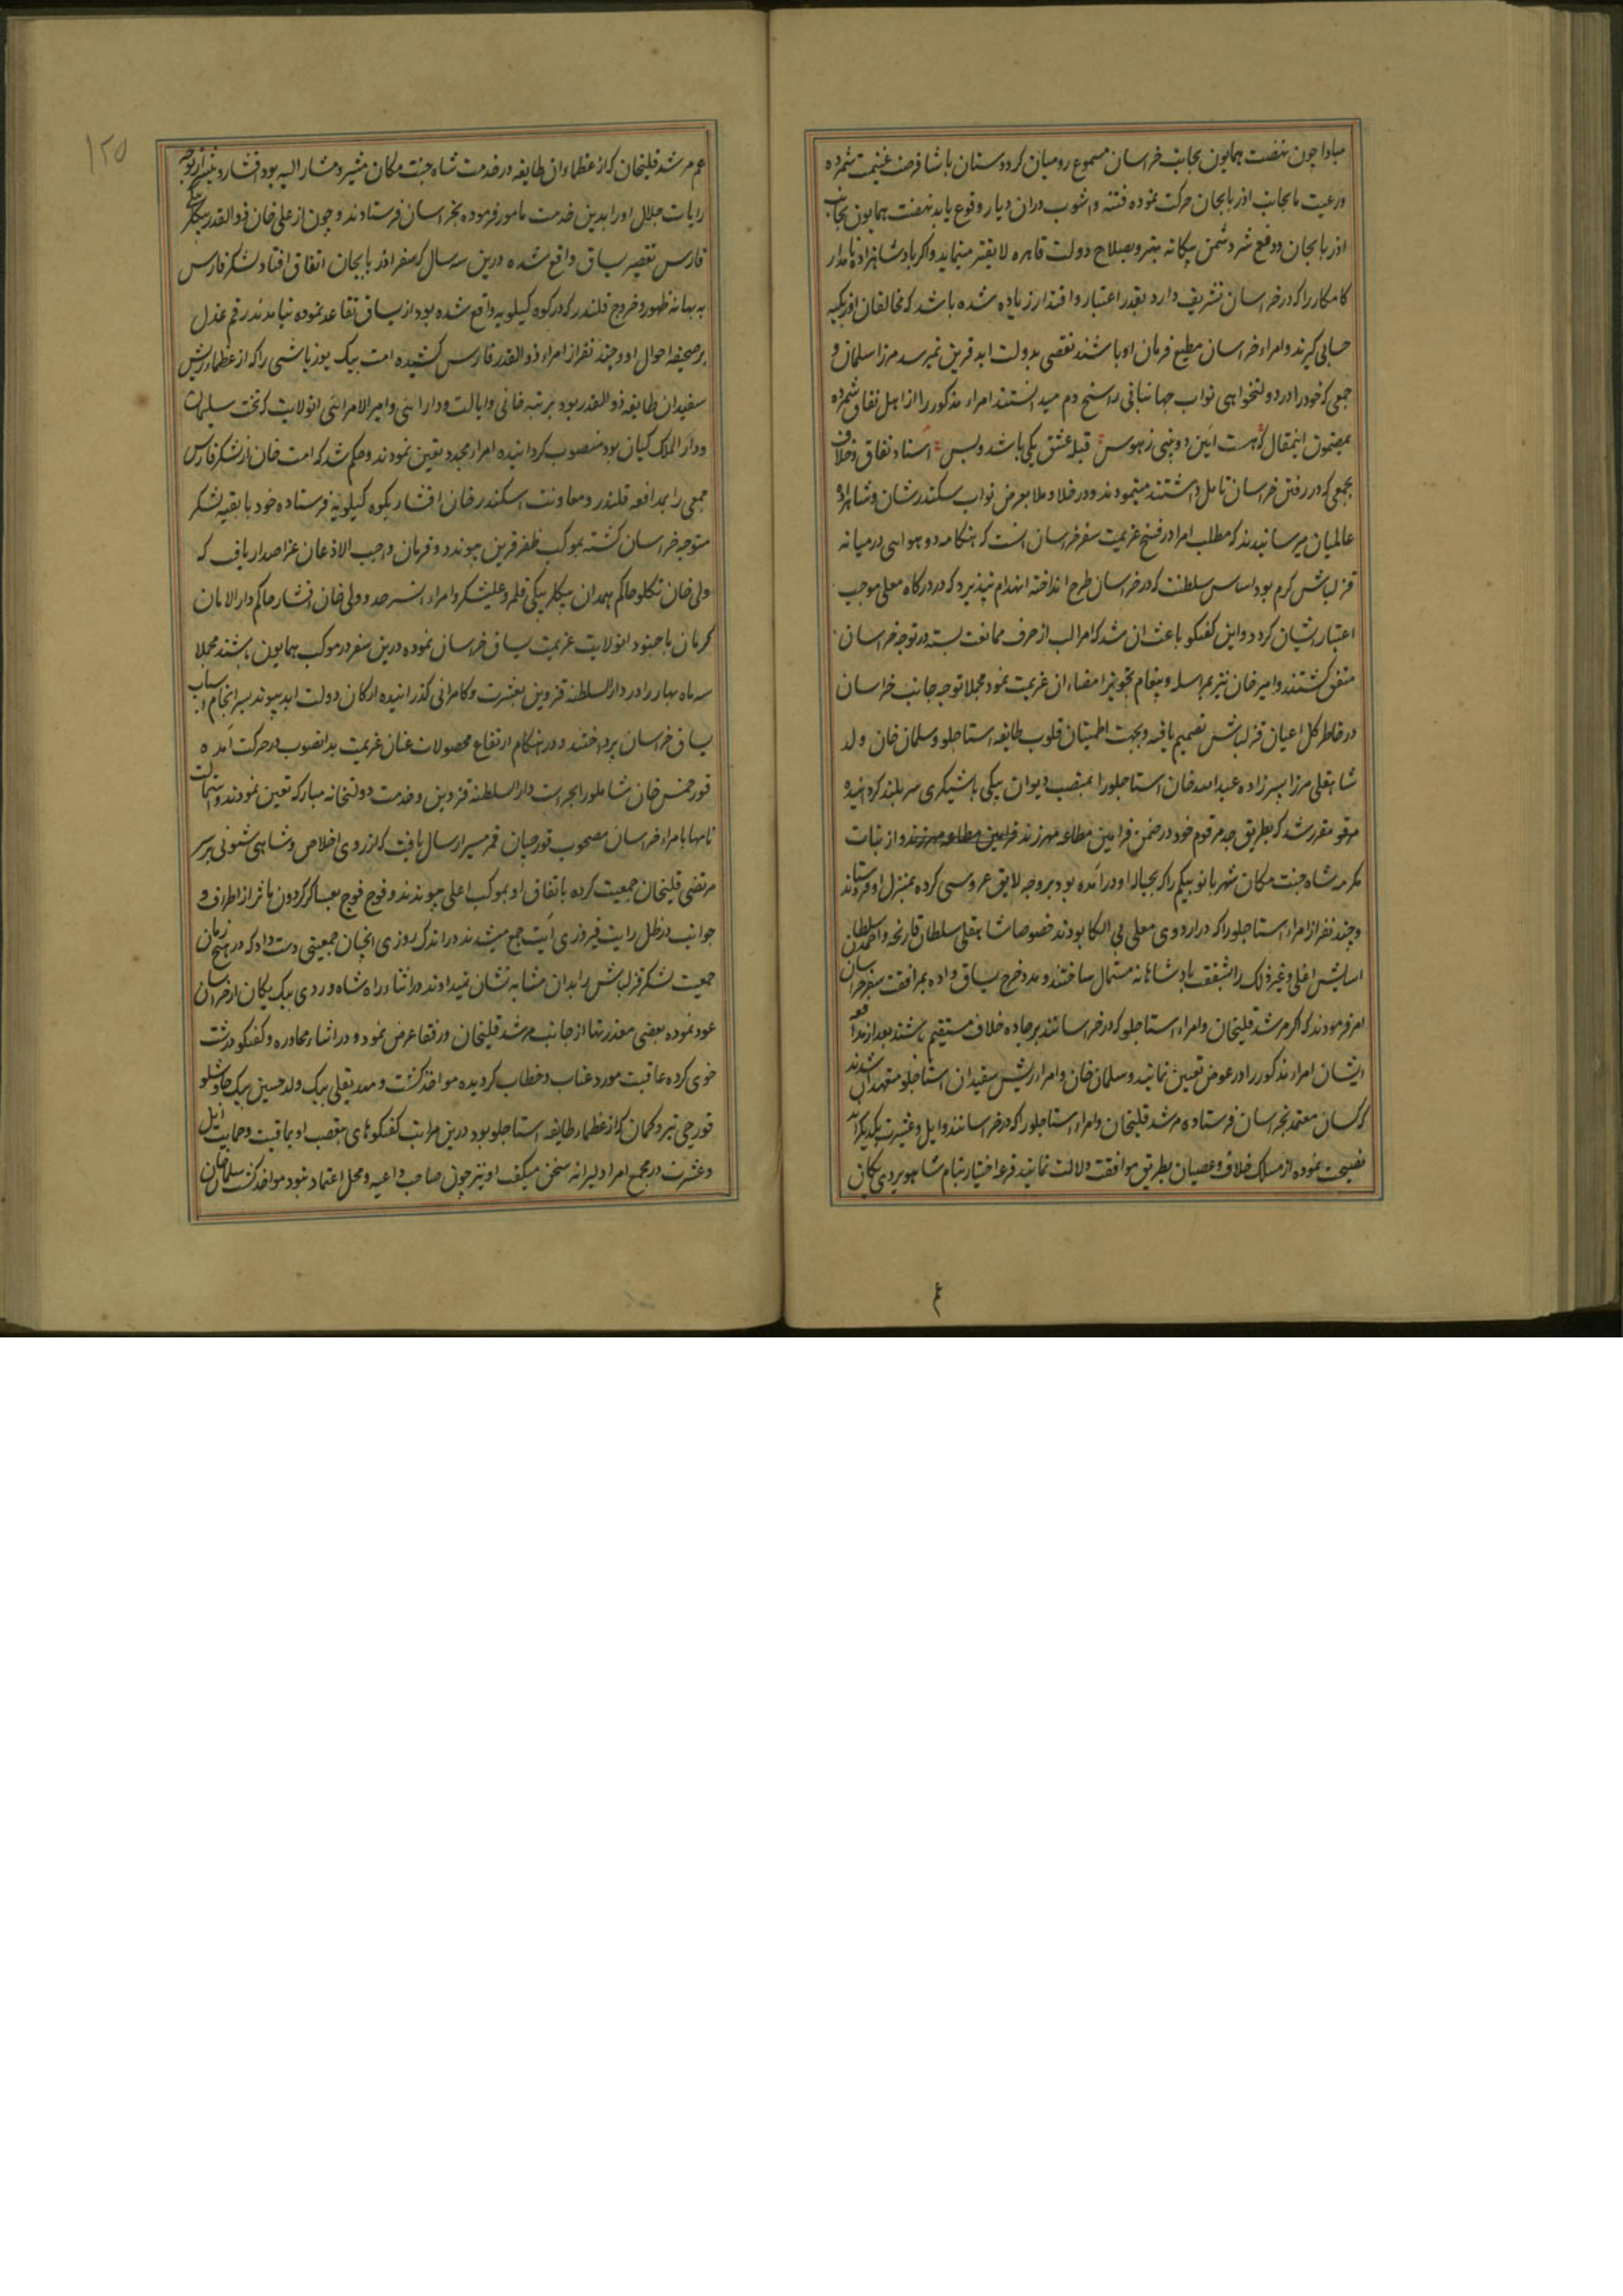 مبادا چون نهضت همایون بجانب خراسان مسموع رومیان کرد و ستان پاشا فرصت غنیمت شمرده
و رعیت مابجانب اذربایجان حرکت نموده فتنه و اشوب دران دیار وقوع یابد نهضت همایون بجانب
اذربایجان و دفع شر دشمن بیکانه بهتر و بصلاح دولت قاهره لایقتر مینماید و اکر پادشاهزاده نامدار
کامکار را که در خراسان تشریف دارد بقدر اعتبار و اقتدار زیاده شده باشد که مخالفان اوزبکیه
حسابی کیرند و امراء خراسان مطیع فرمان او باشند نقصی بدولت ابد قرین نمیرسد مرزا سلمان و
جمعی که خود را در دولتخواهی نواب جهانبانی راسخ دم میدانستند امراء مذکور را از اهل نفاق شمرده
بمضمون اینمقال که هست آئین دو بینی ز هوس قبله عشق یکی باشد و بس اسناد نفاق و خلاف
بجمعی که در رفتن خراسان تامل داشتند مینمودند و در خلا و ملا بعرض نواب سکندر شان و شاهزاده
عالمیان میرسانیدند که مطلب امرا در فسخ عزیمت سفر خراسان انست که هنکامه دو هوایی در میانه
قزلباش کرم بود اساس سلطنت که در خراسان طرح انداخته انهدام نپذیرد که در درکاه معلی موجب
اعتبار ایشان کردد و این کفتکو باعث ان شد که امرا لب از حرف ممانعت بسته در توجه خراسان
متفق کشتند و امیر خان نیز بمراسله و پیغام تجویز امضاء ان عزیمت نمود مجملا توجه جانب خراسان
در خاطر کل اعیان قزلباش تصمیم یافته و بجهت اطمینان قلوب طایفه استاجلو و سلمان خان ولد
شاهقلی مرزا پسرزاده عبدالله خان استاجلو را بمنصب دیوان بیکی باشیکری سربلند کردانیده
مقرر شد که بطریق جد مرقوم خود در ضمن فرامین مطاعه مهر زند فرامین مطاعه مهر زند و از بنات
مکرمه شاه جنت مکان شهربانو بیکم را که بحباله او درآمده بود بروجه لایق عروسی کرده بمنزل او فرستادند
و چند نفر از امراء استاجلو را که در اردوی معلی بی الکا بودند خصوصا شاهقلی سلطان قارنجه و احمد سلطان
اسایش اغلی و غیر ذلک را بشفقت پادشاهانه مستمال ساختند و مدد خرج یساق داده بمرافقت سفر خراسان
امر فرمودند که اکر مرشد قلیخان و امراء استاجلو که در خراسانند بر جاده خلاف مستقیم باشند بعد از مدافعه
ایشان امراء مذکور را در عوض تعیین نمایند و سلمان خان و امرا و ریش سفیدان استاجلو متعهد ان شدند
که کسان معتمد بخراسان فرستاده مرشد قلیخان و امراء استاجلو را که در خراسانند و ایل و عشیرت یکدیکراند
نصیحت نموده از مسلک خلاف و عصیان بطریق موافقت دلالت نمایند قرعه اختیار بنام شاهویردی یکان
عم مرشد قلیخان که از عظماء ان طایفه در خدمت شاه جنت مکان مشیر و مشار الیه بود افتاد و پیشتر از توجه
رایات جلال او را بدین خدمت مامور فرموده بخراسان فرستادند و چون از علی خان ذوالقدر بیکلربیکی
فارس تقصیر یساق واقع شده درین سه سال که سفر اذربایجان اتفاق افتاد لشکر فارس
به بهانه ظهور و خروج قلندر که در کوه کیلویه واقع شده بود از یساق تقاعد نموده نیامدند رقم عذل
بر صحیفه احوال او و چند نفر از امراء ذوالقدر فارس کشیده امت بیک یوزباشی را که از عظماء و ریش
سفیدان طایفه ذوالقدر بود بمرتبه خانی و ایالت و دارائی و امیر الامرائی انولایت که تخت سلیمان
و دار الملک کیان بود منصوب کردانیده امراء مجدد تعیین نمودند و حکم شد که امت خان از لشکر فارس
جمعی را بمدافعه قلندر و معاونت اسکندر خان افشار بکوه کیلویه فرستاده خود با بقیه لشکر
متوجه خراسان کشته بموکب ظفر قرین پیوندد و فرمان واجب الاذعان عز اصدار یافت که
ولی خان تکلو حاکم همدان بیکلربیکی قلمرو علیشکر و امراء انسرحد و ولی خان افشار حاکم دار الامان
کرمان با جنود انولایت عزیمت یساق خراسان نموده درین سفر در موکب همایون باشند مجملا
سه ماه بهار را در دار السلطنه قزوین بعشرت و کامرانی کذرانیده ارکان دولت ابد پیوند بسرانجام اسباب
یساق خراسان پرداختند و در هنکام ارتفاع محصولات عنان عزیمت بدانصوب در حرکت آمده
قورخمس خان شاملو را بحراست دار السلطنه قزوین و خدمت دولتخانه مبارکه تعیین نمودند و استمالت
نامها بامراء خراسان مصحوب قورچیان قمرمسیر ارسال یافت که از روی اخلاص و شاهی شونی بر سر
مرتضی قلیخان جمعیت کرده باتفاق او بموکب اعلی پیوندند و فوج فوج بعساکر کردون ماثر از اطراف و
جوانب در ظل رایت فیروزی آیت جمع میشدند در اندک روزی انچنان جمعیتی دست داد که در هیچ زمان
جمعیت لشکر قزلباش را بدان مشابه نشان نمیدادند در اثناء راه شاه وردی بیک یکان از خراسان
عود نموده بعضی معذرتها از جانب مرشد قلیخان و رفقا عرض نمود و در اثناء محاوره و کفتکو درشت
خوی کرده عاقبت مورد عتاب و خطاب کردیده مواخذ کشت و مهدیقلی بیک ولد حسین بیک چاوشلو
قورچی تیر و کمان که از عظماء طایفه استاجلو بود درین مراتب کفتکوهای بتعصب او بعاقبت و حمایت ایل
و عشیرت در مجمع امرا دلیرانه سخن میکفت او نیز چون صاحب داعیه و محل اعتماد نبود مواخذ کشت سلمان خان
۱۲۵